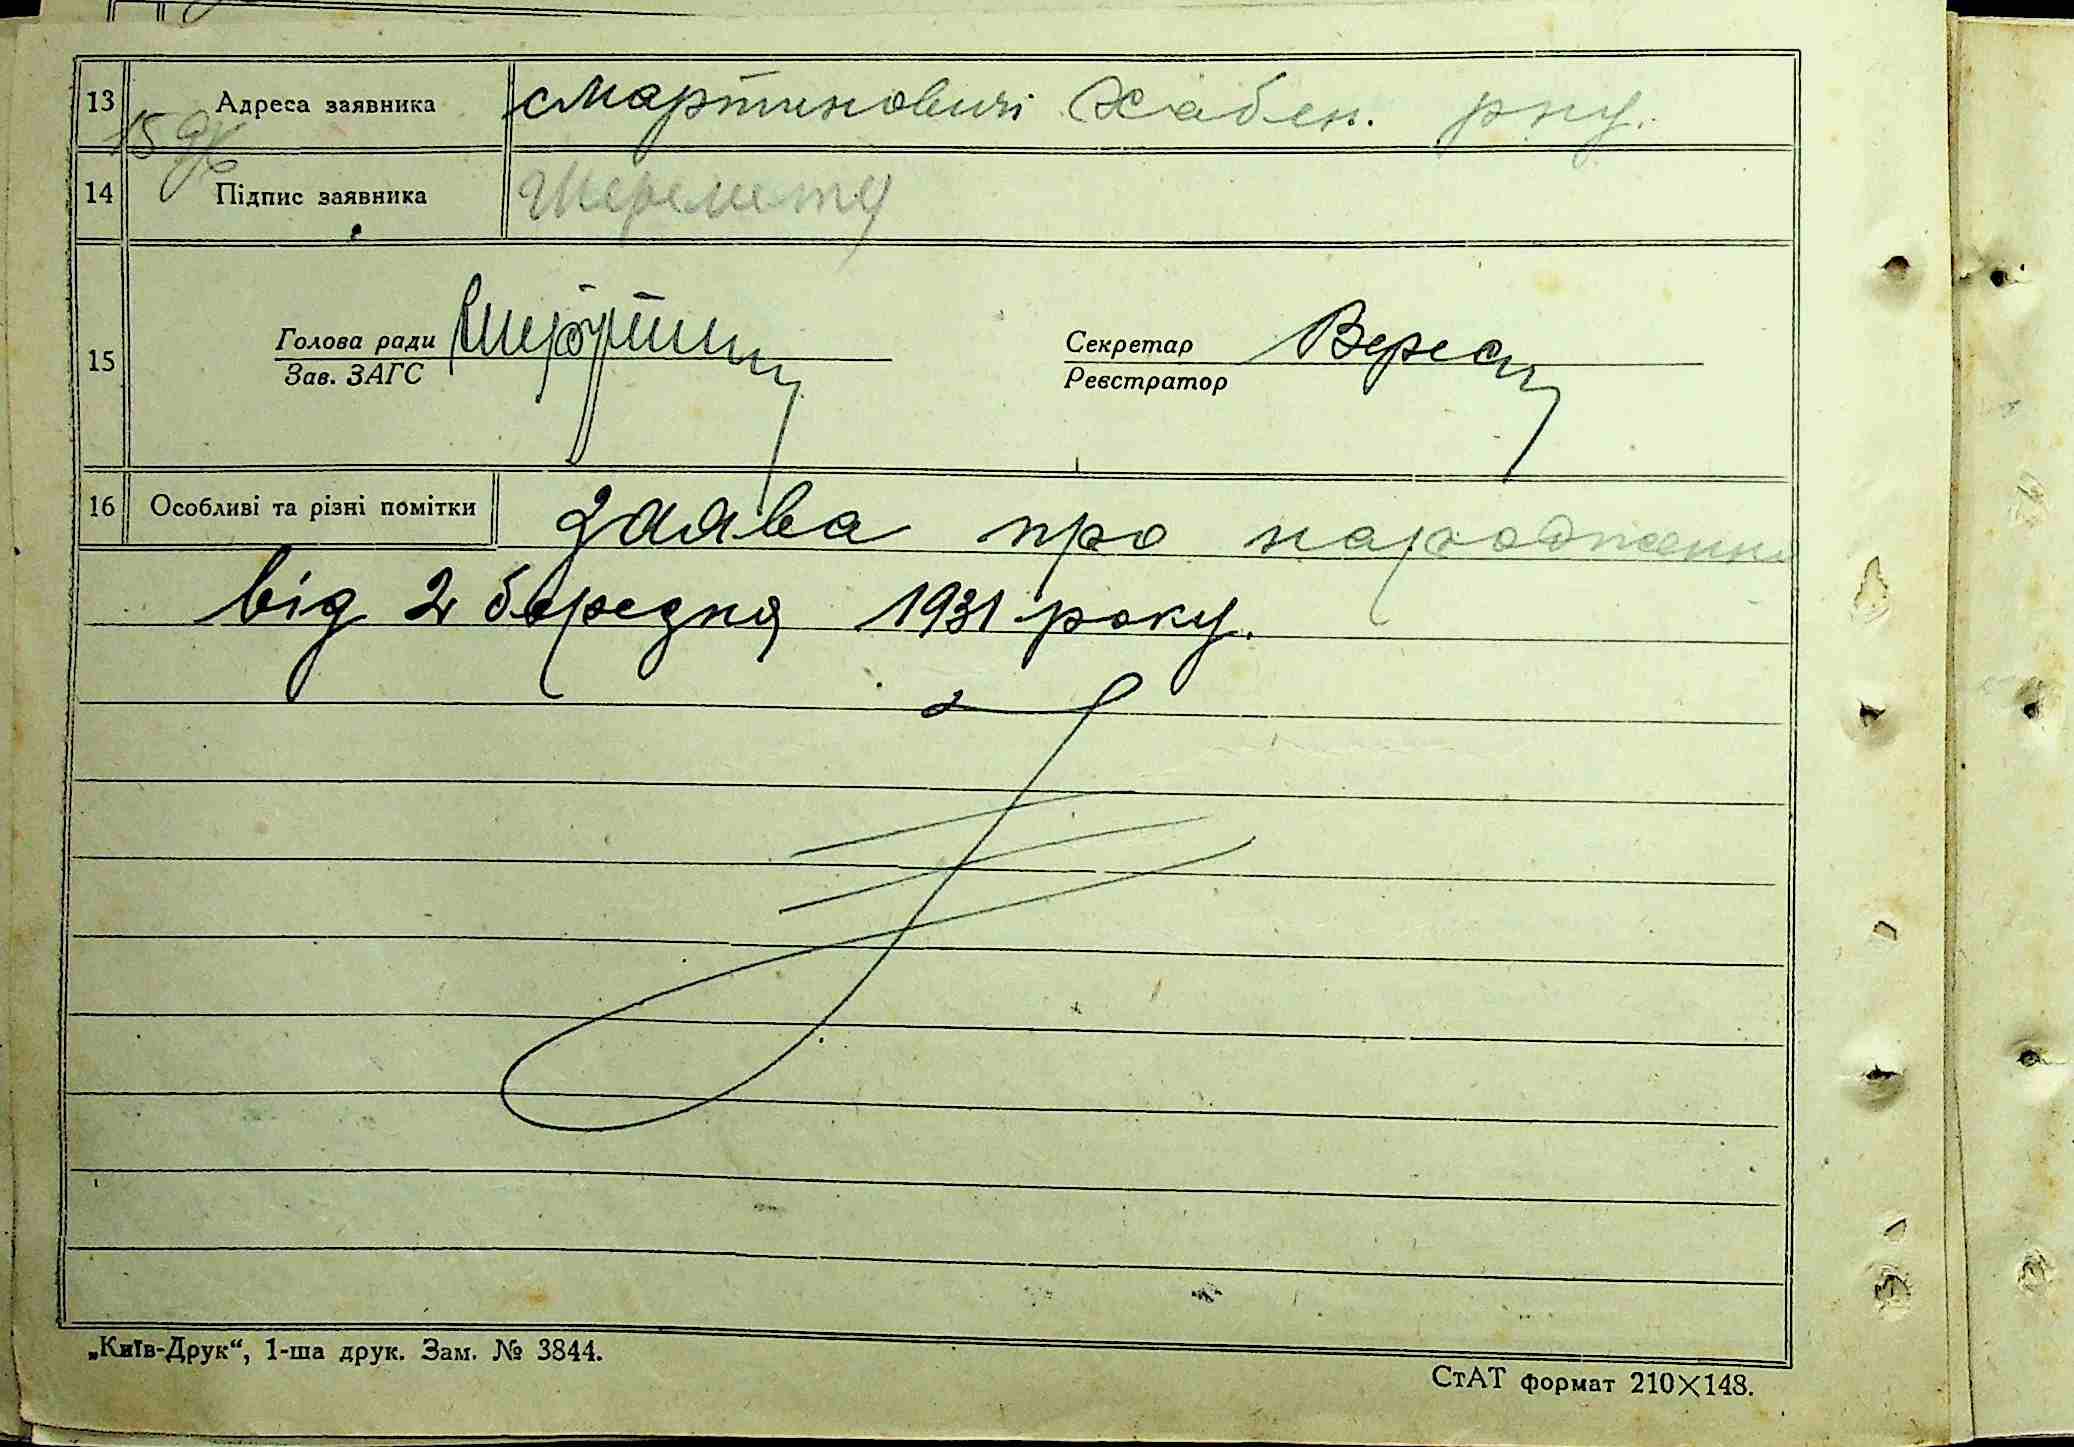 13 Адреса заявника смартиновичі Хабен. рну.
14 Підпис заявника Шеремету
15 Голова ради Секретар Верес
Зав. ЗАГС Реєстратор
16 Особливі та різні помітки заява про народження
від 2 березня 1931 року.
„Київ-Друк“, 1-ша друк. Зам. № 3844.
СтАТ формат 210×148.